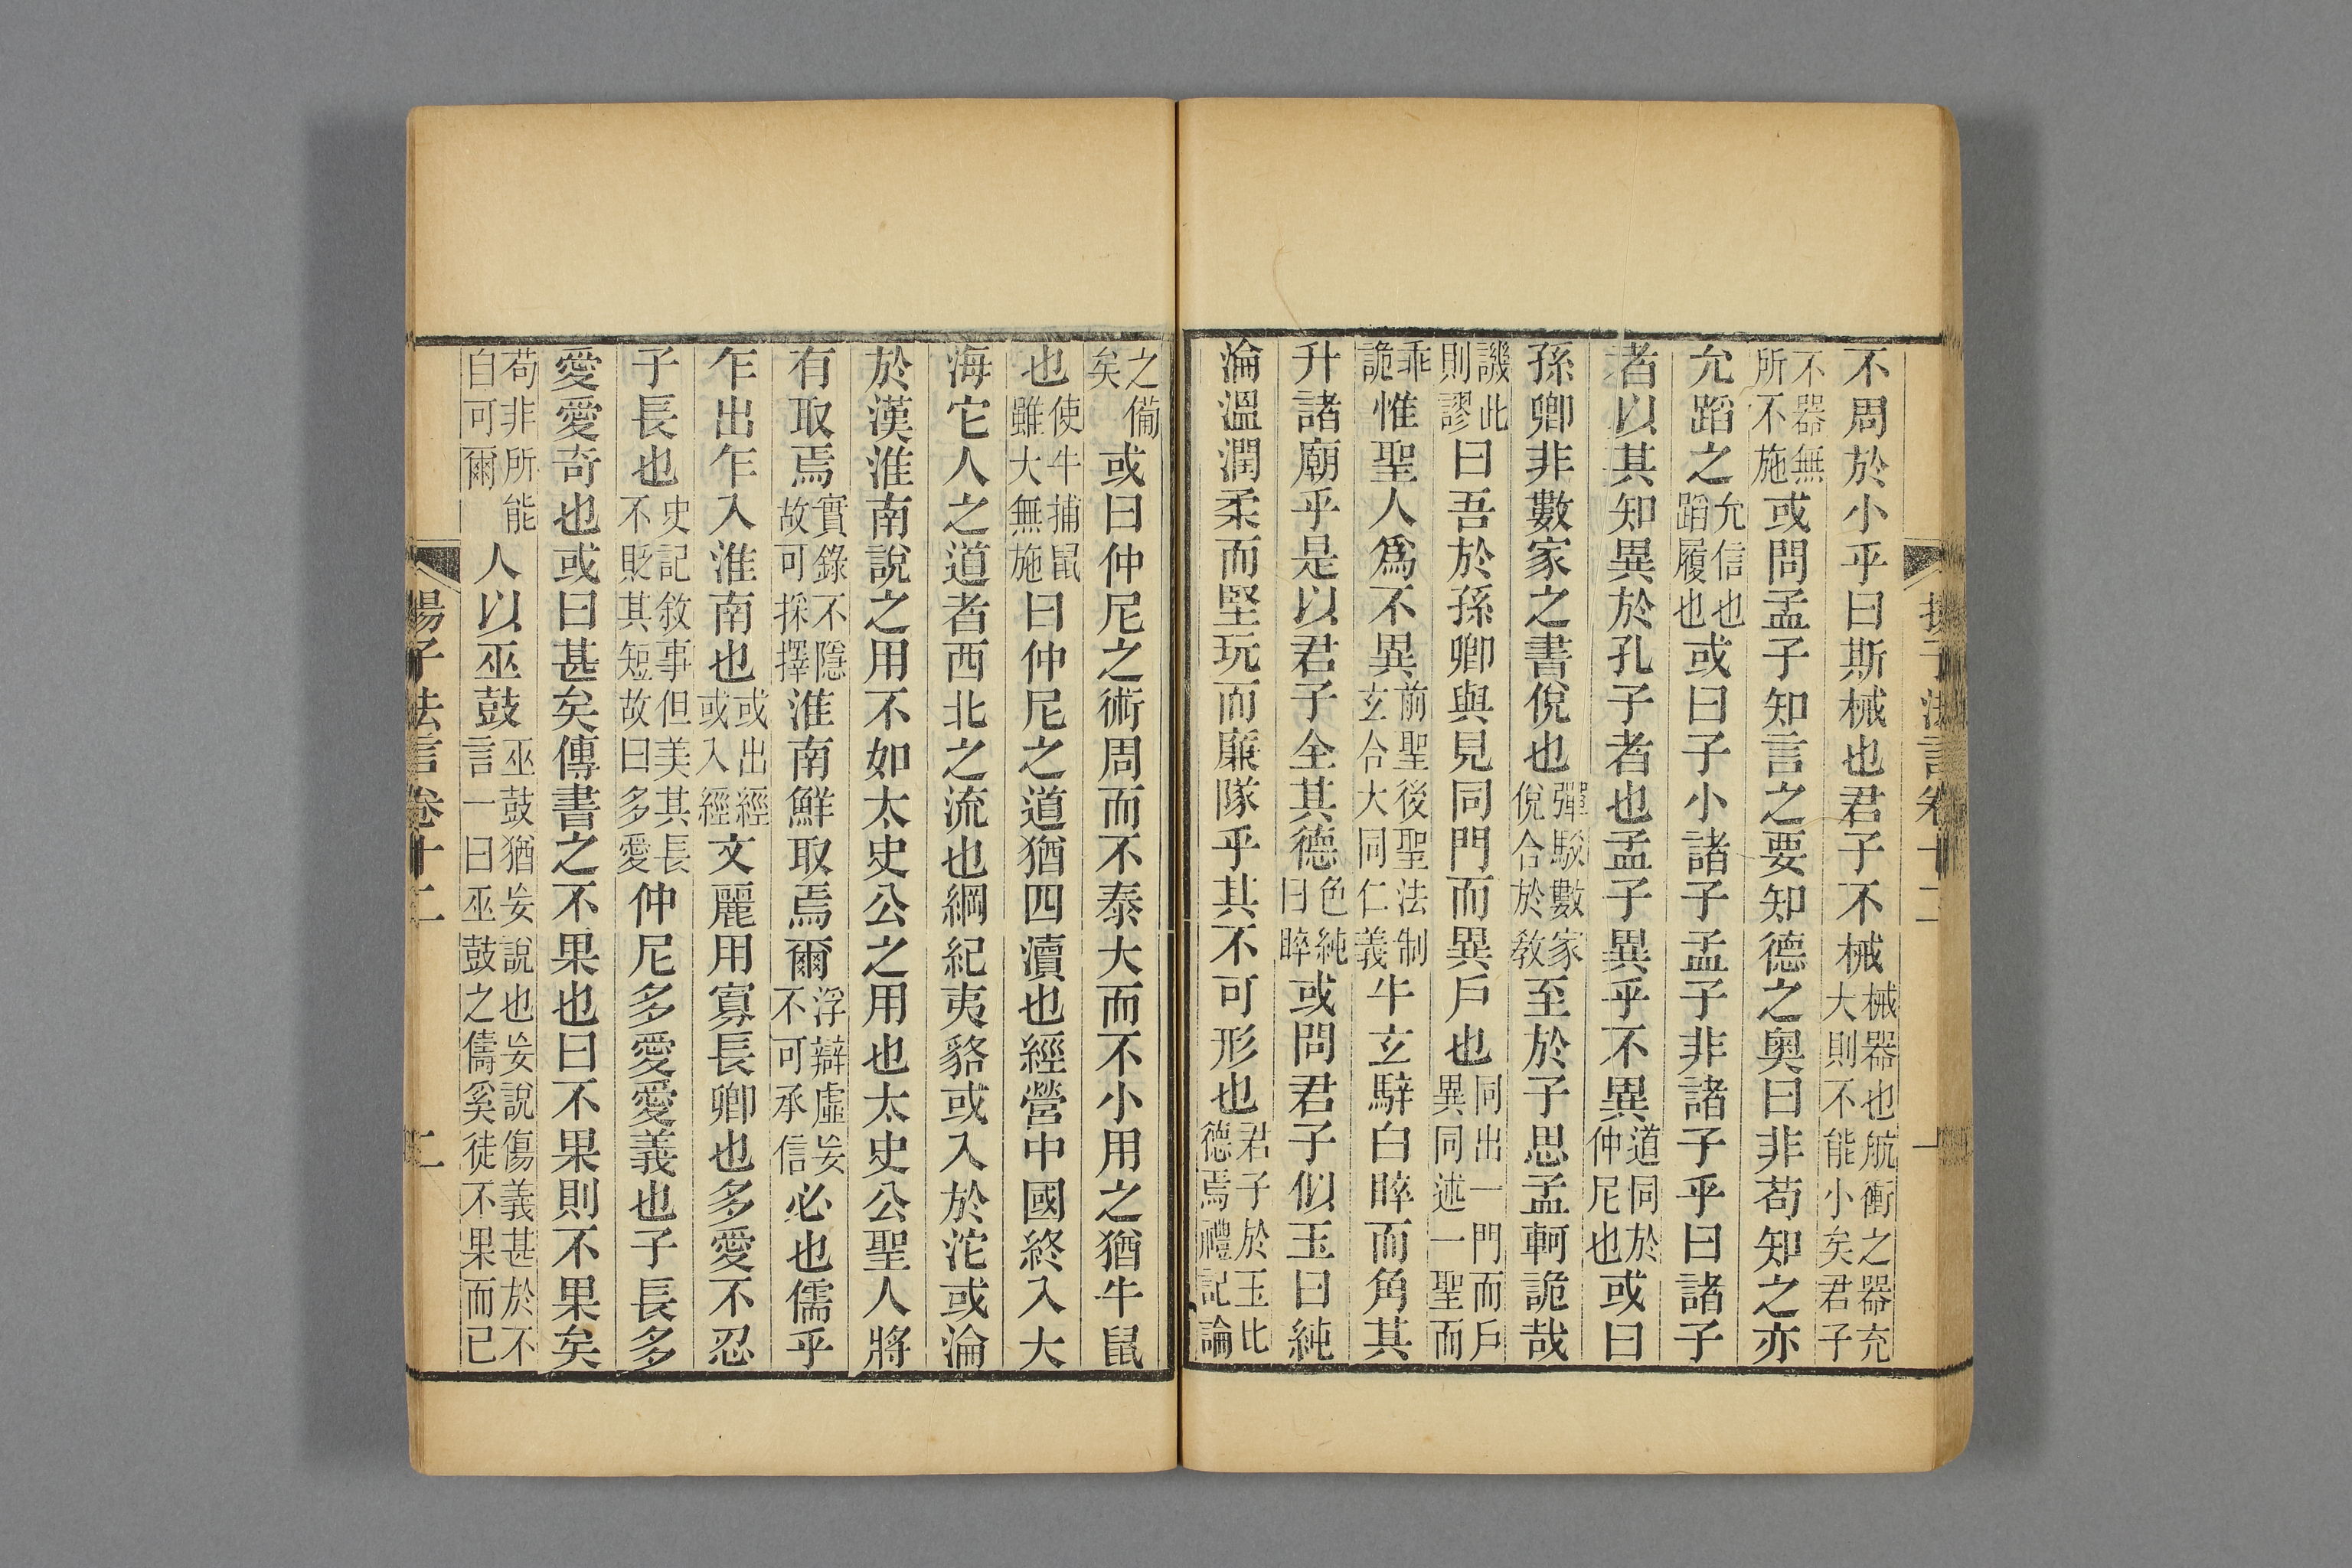 揚子法言卷十二 一
不周於小乎曰斯械也君子不械械器也航衝之器充大則不能小矣君子
不器無所不施或問孟子知言之要知德之奧曰非苟知之亦
允蹈之允信也蹈履也或曰子小諸子孟子非諸子乎曰諸子
者以其知異於孔子者也孟子異乎不異道同於仲尼也或曰
孫卿非數家之書侻也彈駁數家侻合於教至於子思孟軻詭哉
譏此則謬曰吾於孫卿與見同門而異戶也同出一門而戶異同述一聖而
乖詭惟聖人爲不異前聖後聖法制玄合大同仁義牛玄騂白睟而角其
升諸廟乎是以君子全其德色純曰睟或問君子似玉曰純
淪溫潤柔而堅玩而廉隊乎其不可形也君子於玉比德焉禮記論
之備矣或曰仲尼之術周而不泰大而不小用之猶牛鼠
也使牛捕鼠雖大無施曰仲尼之道猶四瀆也經營中國終入大
海它人之道者西北之流也綱紀夷貉或入於沱或淪
於漢淮南說之用不如太史公之用也太史公聖人將
有取焉實錄不隱故可採擇淮南鮮取焉爾浮辯虛妄不可承信必也儒乎
乍出乍入淮南也或出經或入經文麗用寡長卿也多愛不忍
子長也史記敘事但美其長不貶其短故曰多愛仲尼多愛愛義也子長多
愛愛奇也或曰甚矣傳書之不果也曰不果則不果矣
苟非所能自可爾人以巫鼓巫鼓猶妄說也妄說傷義甚於不言一曰巫鼓之儔奚徒不果而已
揚子法言卷十二 二